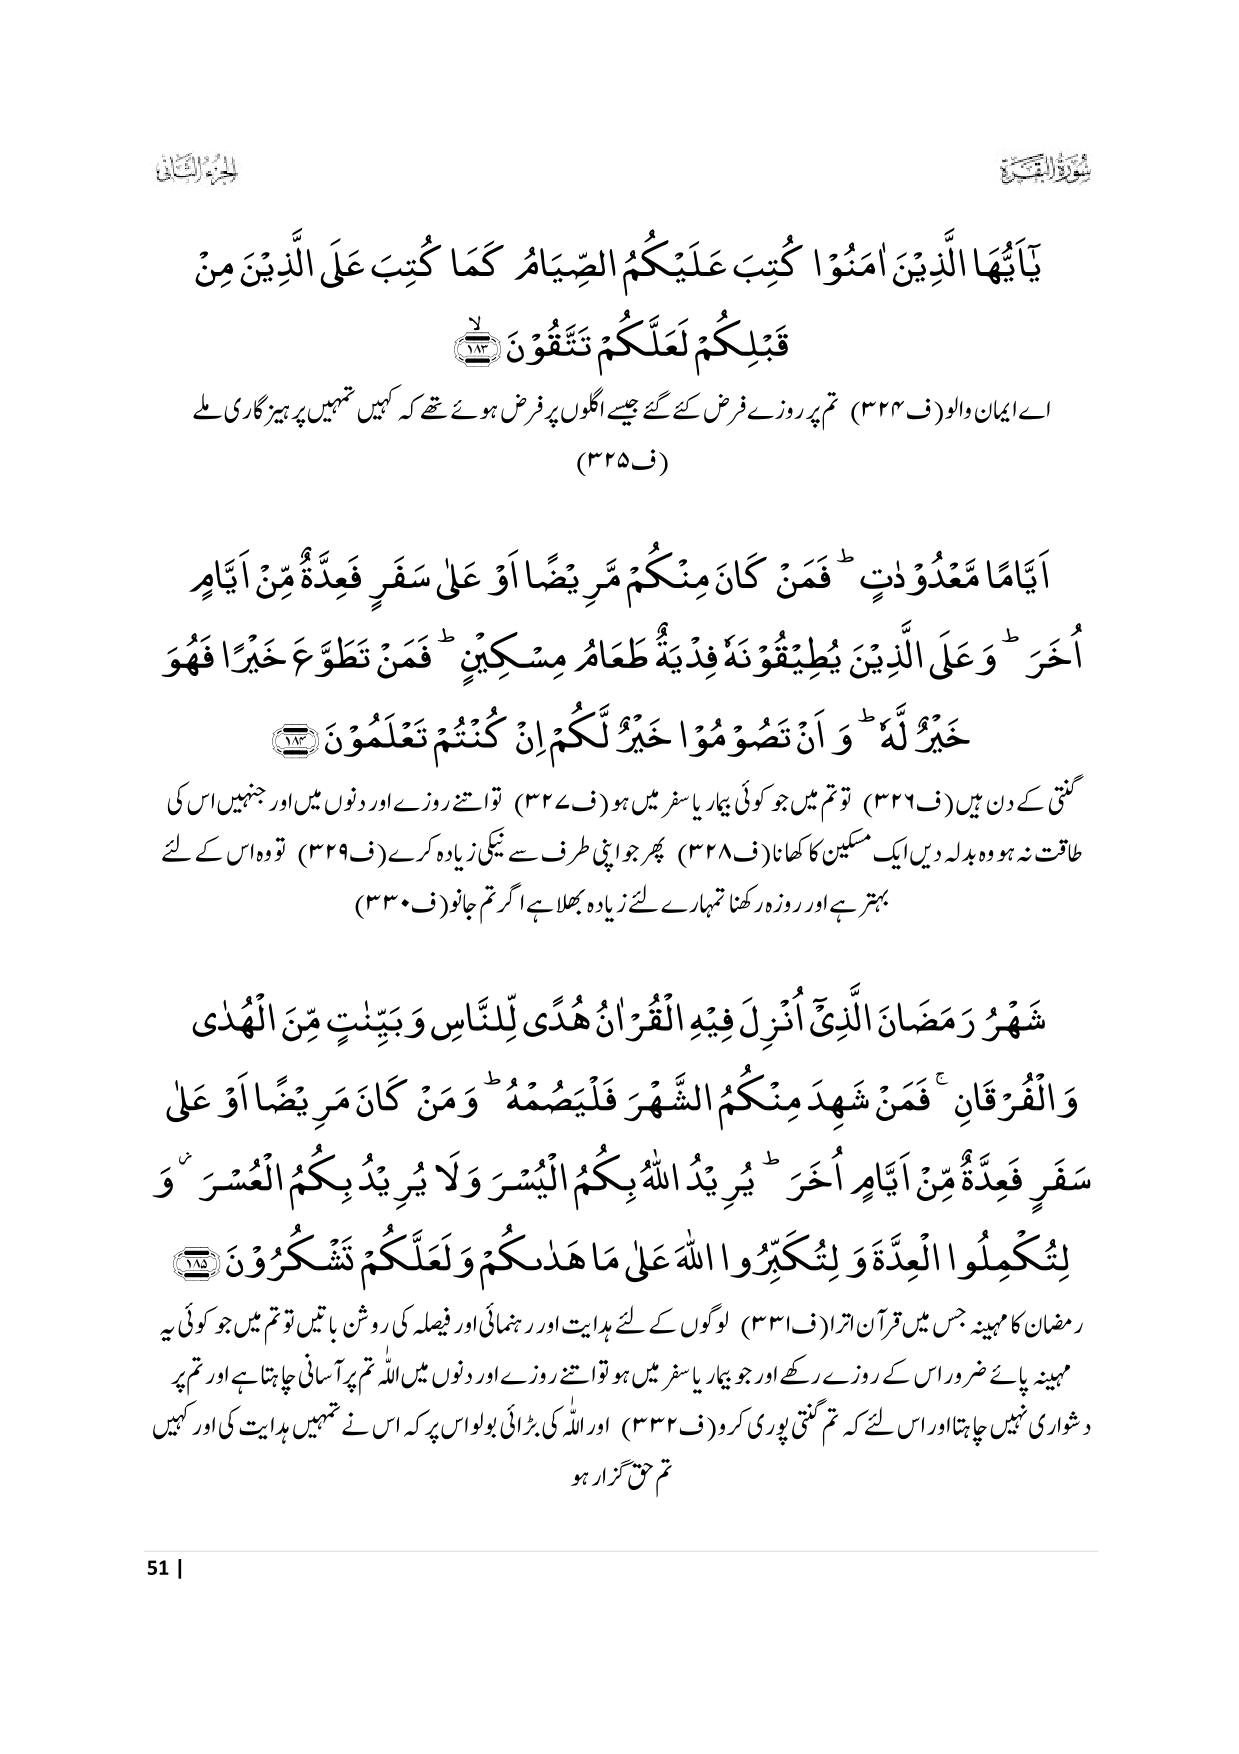 سُوْرَةُ الْبَقَـرَة
الجزءُ الثَّانِی
يٰٓاَيُّهَا الَّذِيْنَ اٰمَنُوْا كُتِبَ عَلَيْكُمُ الصِّيَامُ كَمَا كُتِبَ عَلَى الَّذِيْنَ مِنْ
قَبْلِكُمْ لَعَلَّكُمْ تَتَّقُوْنَ ۙ﴿۱۸۳﴾
اے ایمان والو (ف۳۲۴) تم پر روزے فرض کئے گئے جیسے اگلوں پر فرض ہوئے تھے کہ کہیں تمہیں پرہیزگاری ملے
(ف۳۲۵)
اَيَّامًا مَّعْدُوْدٰتٍ ؕ فَمَنْ كَانَ مِنْكُمْ مَّرِيْضًا اَوْ عَلٰى سَفَرٍ فَعِدَّةٌ مِّنْ اَيَّامٍ
اُخَرَ ؕ وَعَلَى الَّذِيْنَ يُطِيْقُوْنَهٗ فِدْيَةٌ طَعَامُ مِسْكِيْنٍ ؕ فَمَنْ تَطَوَّعَ خَيْرًا فَهُوَ
خَيْرٌ لَّهٗ ؕ وَ اَنْ تَصُوْمُوْا خَيْرٌ لَّكُمْ اِنْ كُنْتُمْ تَعْلَمُوْنَ ﴿۱۸۴﴾
گنتی کے دن ہیں (ف۳۲۶) تو تم میں جو کوئی بیمار یا سفر میں ہو (ف۳۲۷) تو اتنے روزے اور دنوں میں اور جنہیں اس کی
طاقت نہ ہو وہ بدلہ دیں ایک مسکین کا کھانا (ف۳۲۸) پھر جو اپنی طرف سے نیکی زیادہ کرے (ف۳۲۹) تو وہ اس کے لئے
بہتر ہے اور روزہ رکھنا تمہارے لئے زیادہ بھلا ہے اگر تم جانو (ف۳۳۰)
شَهْرُ رَمَضَانَ الَّذِيْٓ اُنْزِلَ فِيْهِ الْقُرْاٰنُ هُدًى لِّلنَّاسِ وَ بَيِّنٰتٍ مِّنَ الْهُدٰى
وَ الْفُرْقَانِ ۚ فَمَنْ شَهِدَ مِنْكُمُ الشَّهْرَ فَلْيَصُمْهُ ؕ وَ مَنْ كَانَ مَرِيْضًا اَوْ عَلٰى
سَفَرٍ فَعِدَّةٌ مِّنْ اَيَّامٍ اُخَرَ ؕ يُرِيْدُ اللّٰهُ بِكُمُ الْيُسْرَ وَ لَا يُرِيْدُ بِكُمُ الْعُسْرَ ۫ وَ
لِتُكْمِلُوا الْعِدَّةَ وَ لِتُكَبِّرُوا اللّٰهَ عَلٰى مَا هَدٰىكُمْ وَ لَعَلَّكُمْ تَشْكُرُوْنَ ﴿۱۸۵﴾
رمضان کا مہینہ جس میں قرآن اترا (ف۳۳۱) لوگوں کے لئے ہدایت اور رہنمائی اور فیصلہ کی روشن باتیں تو تم میں جو کوئی یہ
مہینہ پائے ضرور اس کے روزے رکھے اور جو بیمار یا سفر میں ہو تو اتنے روزے اور دنوں میں اللّٰہ تم پر آسانی چاہتا ہے اور تم پر
دشواری نہیں چاہتا اور اس لئے کہ تم گنتی پوری کرو (ف۳۳۲) اور اللّٰہ کی بڑائی بولو اس پر کہ اس نے تمہیں ہدایت کی اور کہیں
تم حق گزار ہو
51 |